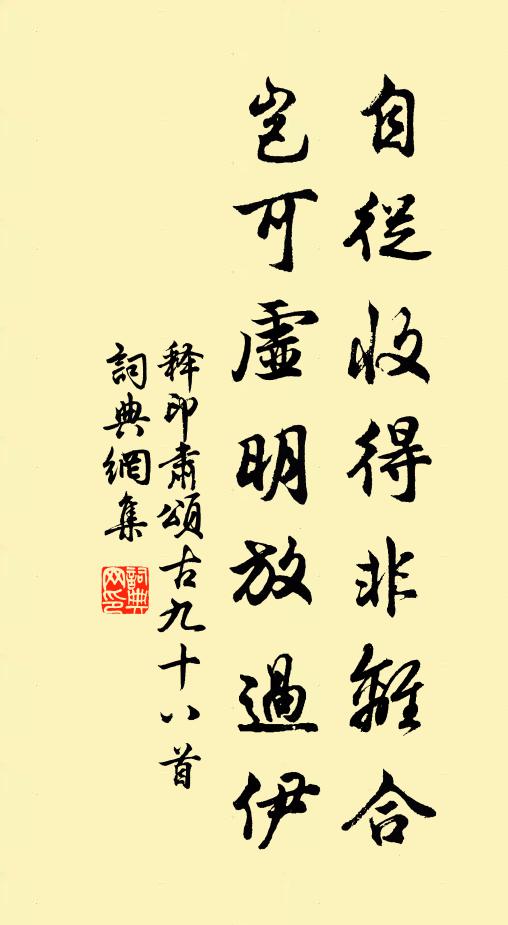 自從收得非離合
豈可虛明放過伊
释印肅頌古九十八首
詞典網集
詞典網印